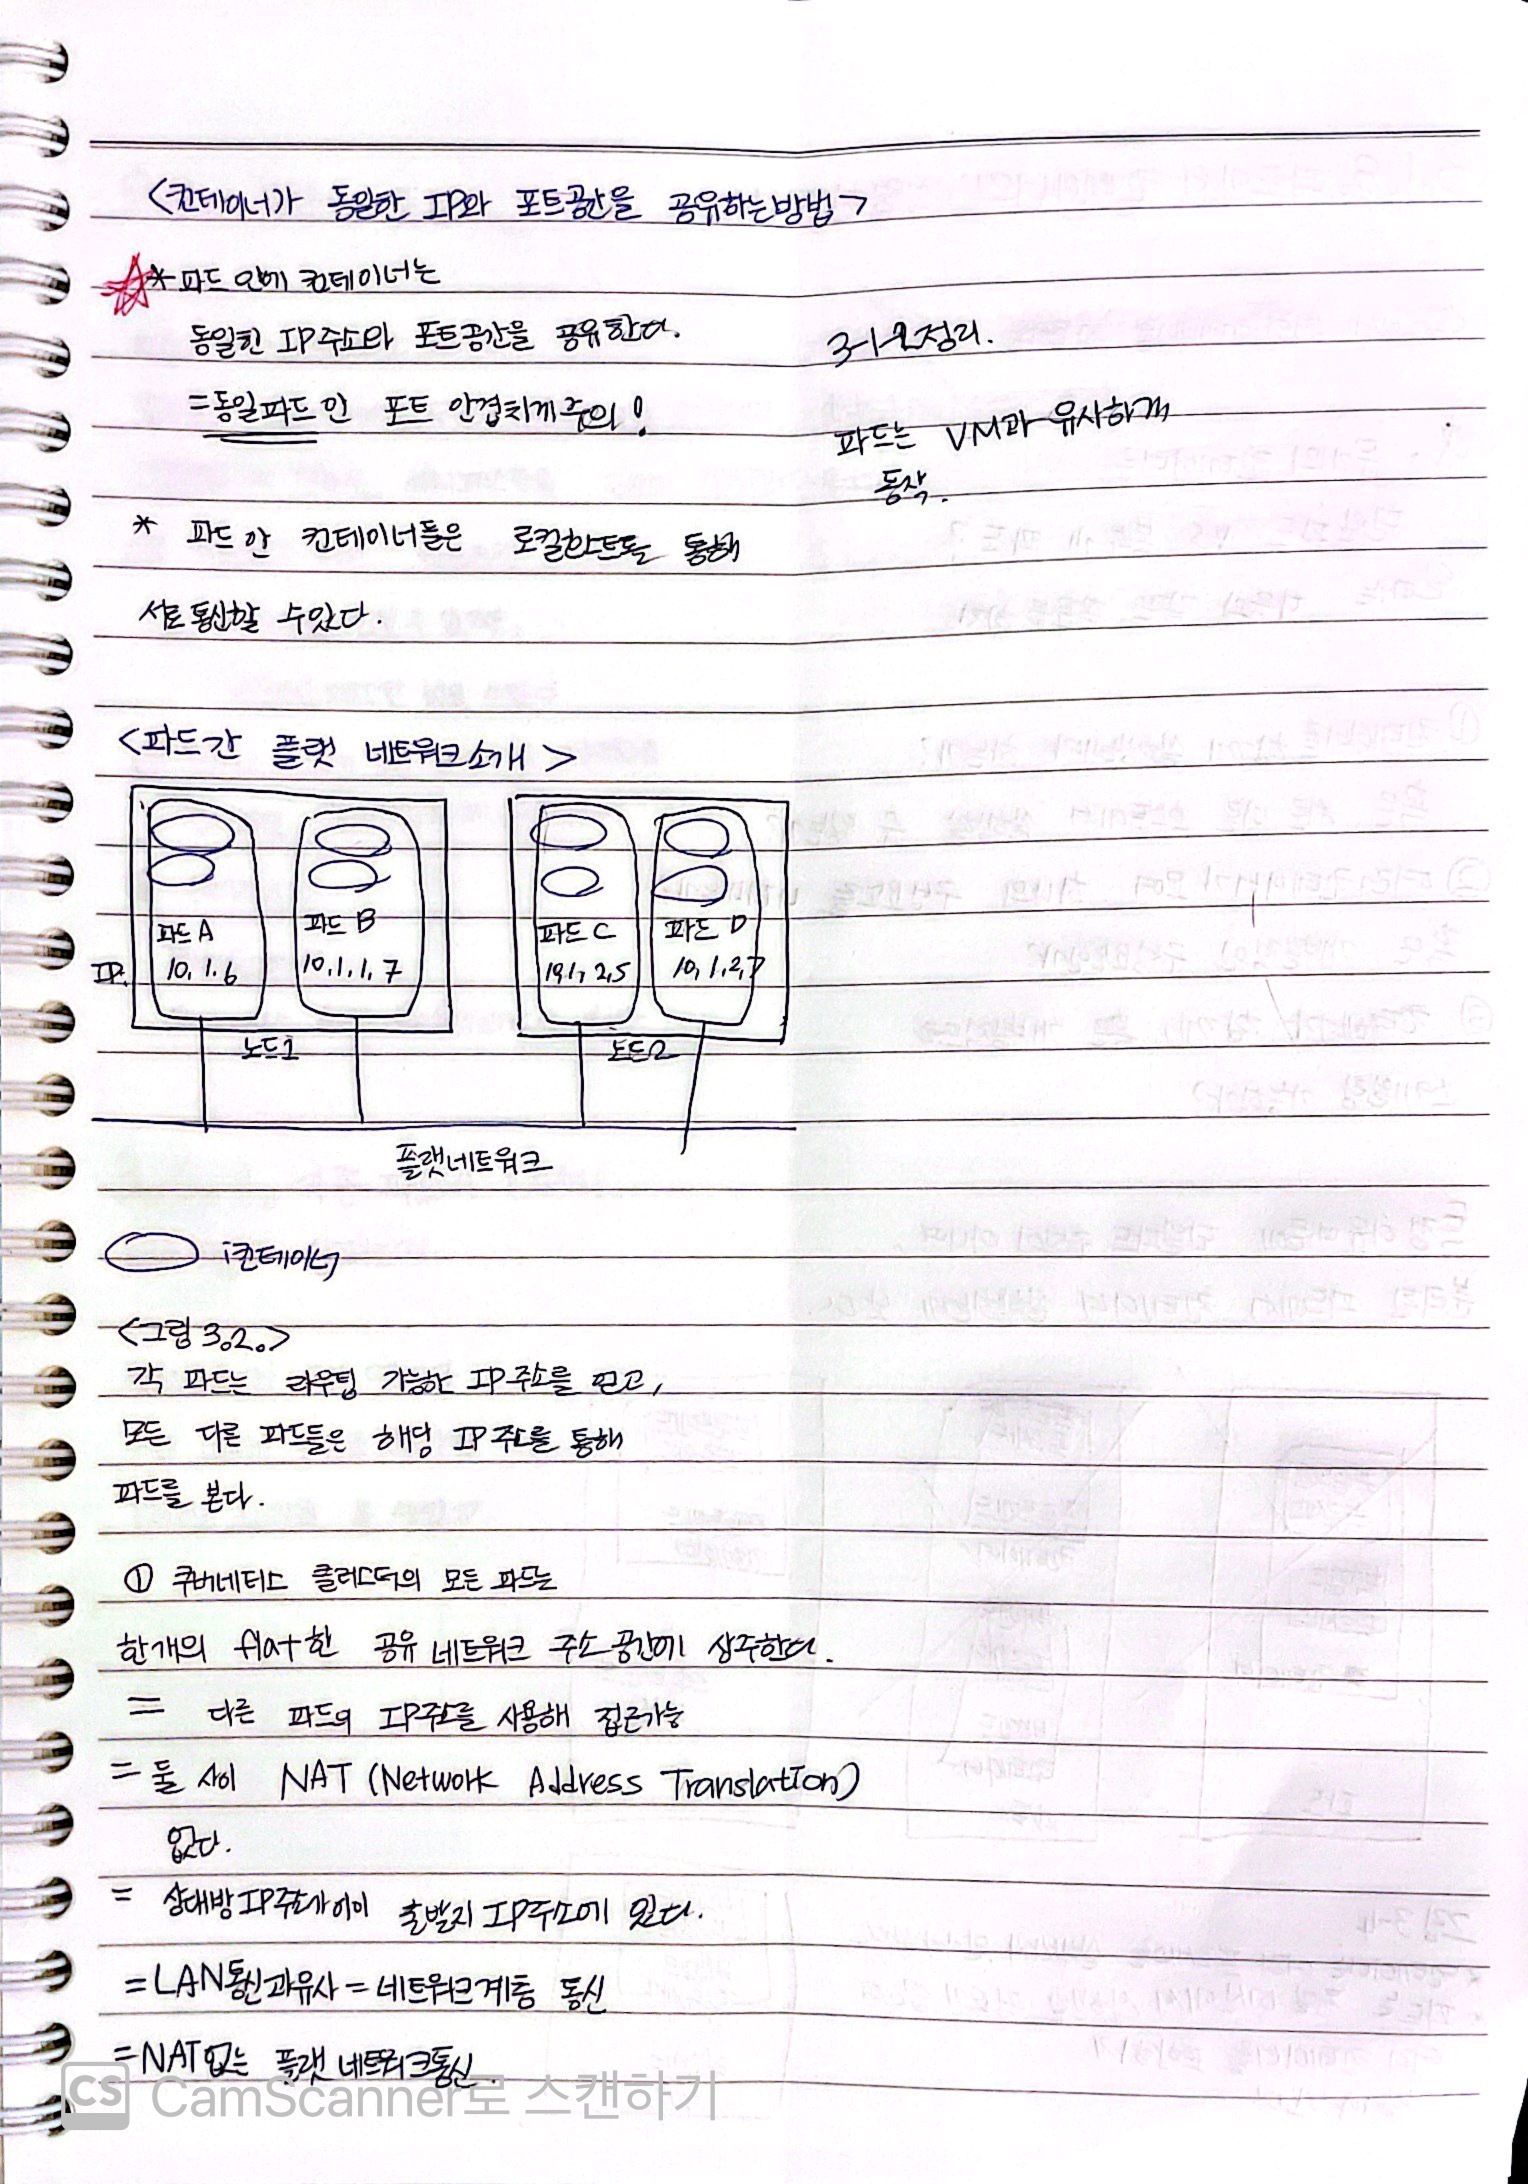 <컨테이너가 동일한 IP와 포트공간을 공유하는방법>
* 파드 안에 컨테이너는
동일한 IP주소와 포트공간을 공유한다.
=동일파드인 포트 안겹치게 주의!
3-1-2정리.
파드는 VM과 유사하게
동작.
* 파드 안 컨테이너들은 로컬호스트를 통해
서로 통신할 수 있다.
<파드간 플랫 네트워크소개>
파드 A 파드 B 파드 C 파드 D
IP: 10, 1.6 10,1,1,7 10,1,2,5 10,1,2,7
노드1 노드2
플랫네트워크
:컨테이너
<그림 3.2.>
각 파드는 라우팅 가능한 IP주소를 얻고,
모든 다른 파드들은 해당 IP주소를 통해
파드를 본다.
① 쿠버네티스 클러스터의 모든 파드는
한개의 flat한 공유 네트워크 주소 공간에 상주한다.
= 다른 파드의 IP주소를 사용해 접근가능
= 둘 사이 NAT (Network Address Translation)
없다.
= 상대방IP주소가이미 출발지 IP주소에 있다.
=LAN통신과유사=네트워크계층 통신
=NAT없는 플랫 네트워크통신.
CS CamScanner로 스캔하기